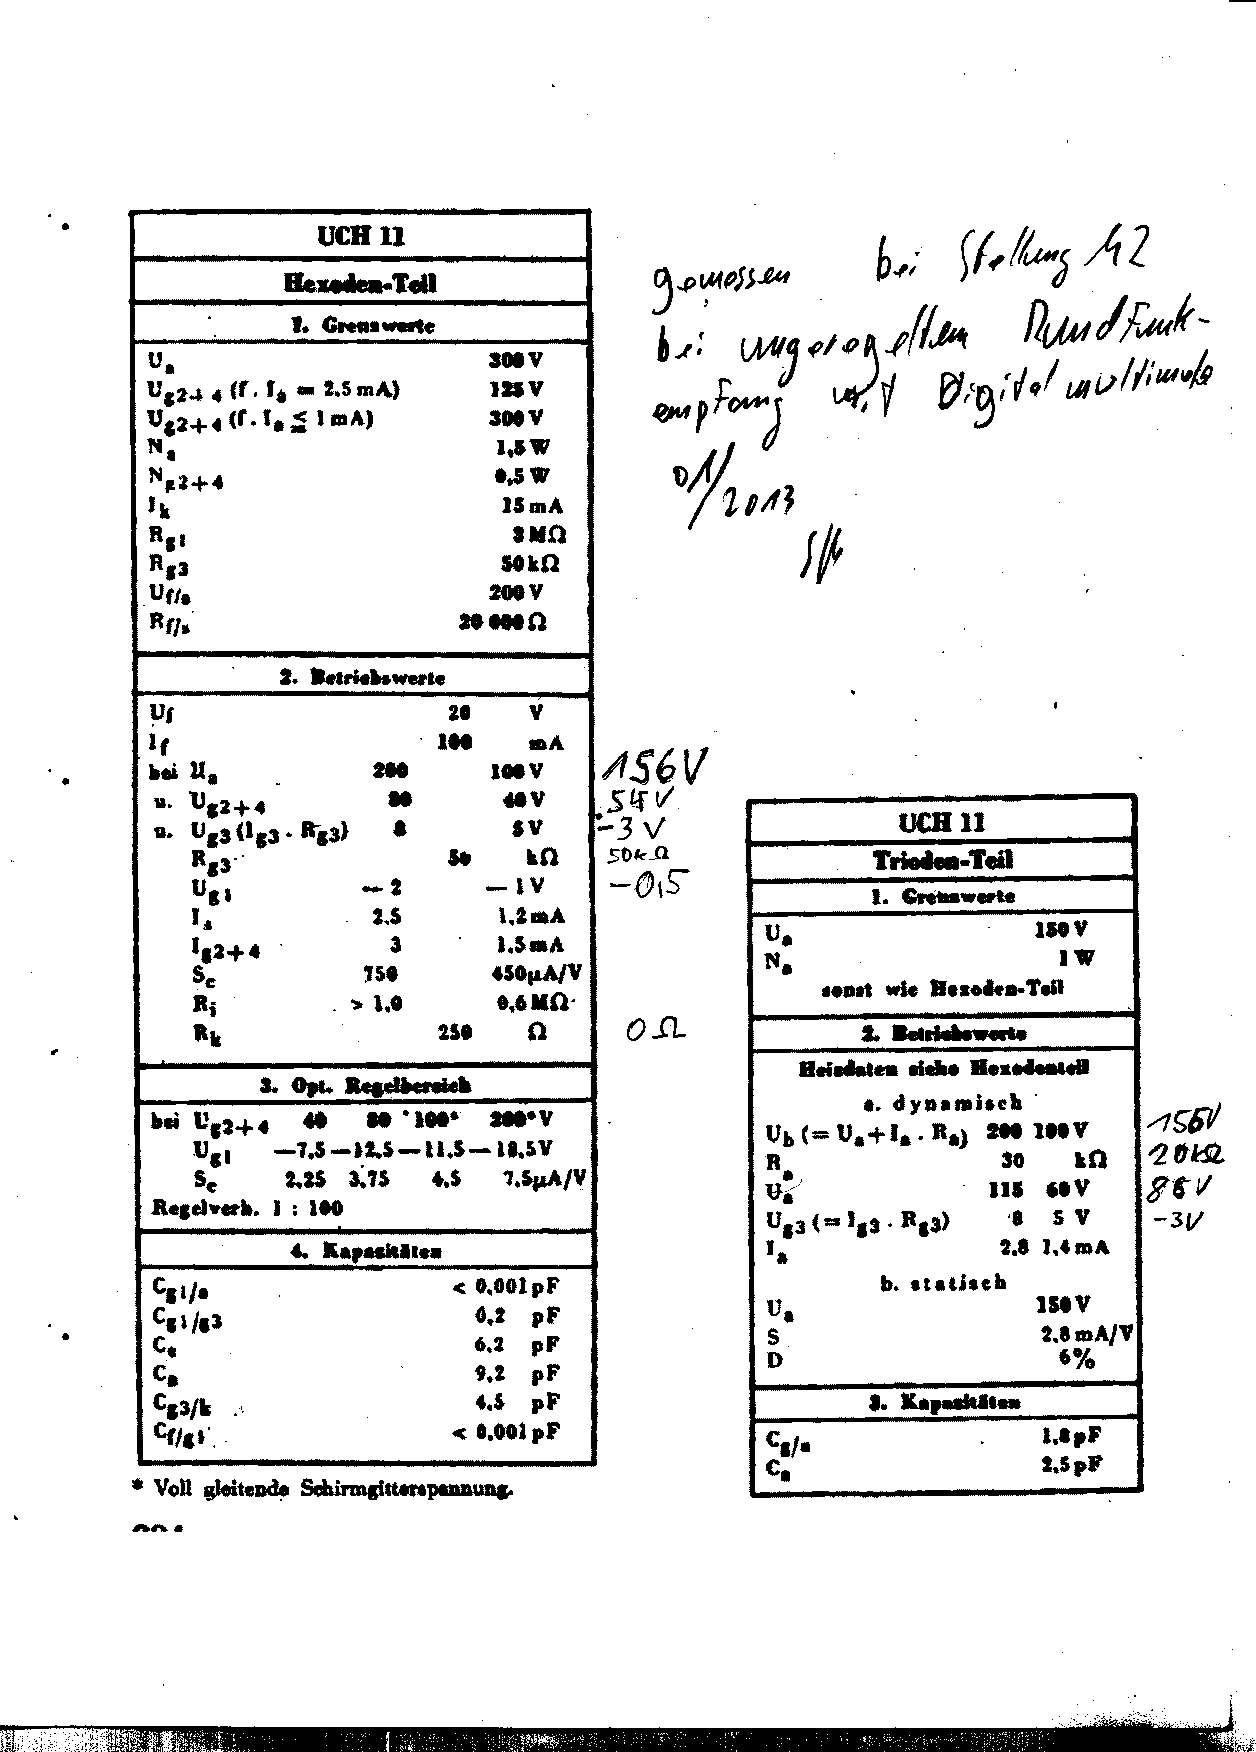 UCH 11
Hexoden-Teil
1. Grenzwerte
Ua 300 V
Ug2+4 (f. Ia = 2.5 mA) 125 V
Ug2+4 (f. Ia ≦ 1 mA) 300 V
Na 1,5 W
Ng2+4 0,5 W
Ik 15 mA
Rg1 3 MΩ
Rg3 50 kΩ
Uf/s 200 V
Rf/s 20 000 Ω
2. Betriebswerte
Uf 20 V
If 100 mA
bei Ua 200 100 V 156V
u. Ug2+4 80 40 V 54V
u. Ug3 (Ig3 . Rg3) 8 5 V -3 V
Rg3 50 kΩ 50kΩ
Ug1 — 2 — 1 V -0,5
Ia 2.5 1,2 mA
Ig2+4 3 1.5 mA
Sc 750 450 µA/V
Ri > 1,0 0,6 MΩ
Rk 250 Ω 0 Ω
3. Opt. Regelbereich
bei Ug2+4 40 80 100* 200* V
Ug1 —7,5 —12,5 —11,5 —18,5 V
Sc 2,25 3,75 4,5 7,5 µA/V
Regelverh. 1 : 100
4. Kapazitäten
Cg1/a < 0,001 pF
Cg1/g3 0,2 pF
Ce 6,2 pF
Ca 9,2 pF
Cg3/k 4,5 pF
Cf/g1 < 0,001 pF
* Voll gleitende Schirmgitterspannung.
gemessen bei Stellung
bei ungeregeltem Rundfunk-
empfang mit Digitalmultimeter
01/2013
UCH 11
Trioden-Teil
1. Grenzwerte
Ua 150 V
Na 1 W
sonst wie Hexoden-Teil
2. Betriebswerte
Heizdaten siehe Hexodenteil
a. dynamisch
Ub (= Ua + Ia . Ra) 200 100 V 156V
Ra 30 kΩ 20kΩ
Ua 115 60 V 86V
Ug3 (= Ig3 . Rg3) 8 5 V -3V
Ia 2,8 1,4 mA
b. statisch
Ua 150 V
S 2,8 mA/V
D 6%
3. Kapazitäten
Cg/a 1,8 pF
Ca 2,5 pF